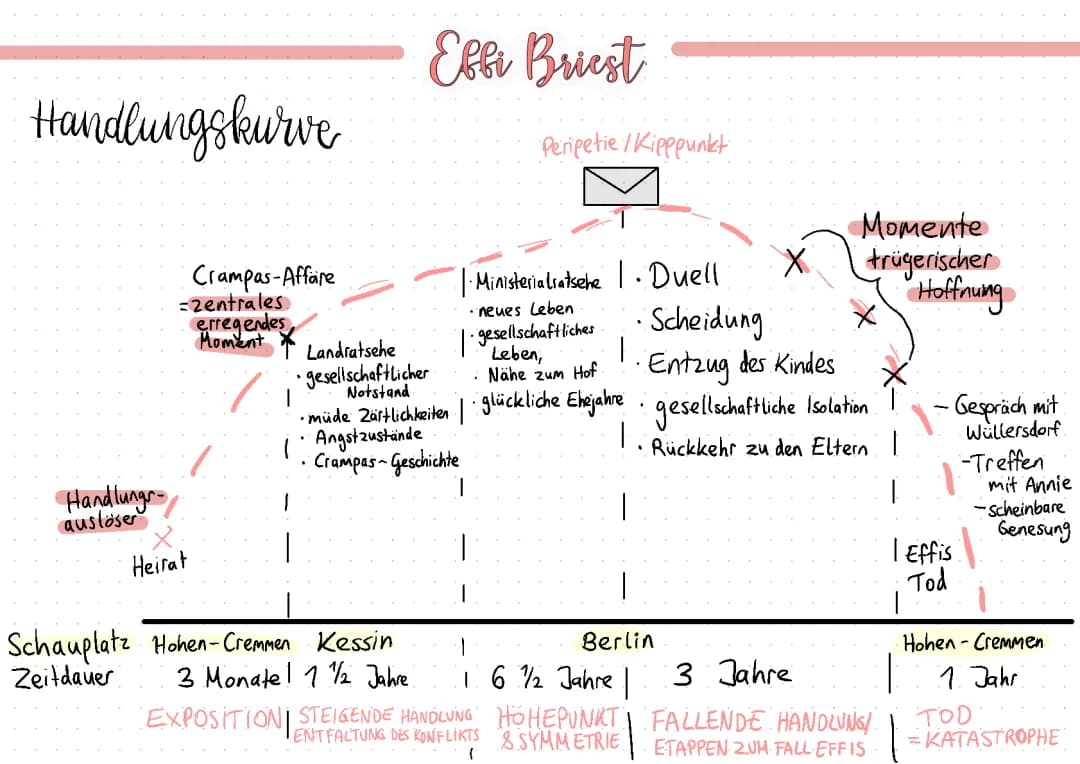 Effi Briest
Handlungskurve
Peripetie / Kipppunkt
Momente
trügerischer
Hoffnung
Crampas-Affäre
= zentrales
erregendes
Moment
Landratsehe
· gesellschaftlicher
Notstand
· müde Zärtlichkeiten
· Angstzustände
· Crampas-Geschichte
· Ministerialratsehe
· neues Leben
· gesellschaftliches
Leben,
· Nähe zum Hof
· glückliche Ehejahre
· Duell
· Scheidung
· Entzug des Kindes
· gesellschaftliche Isolation
· Rückkehr zu den Eltern
- Gespräch mit
Wüllersdorf
- Treffen
mit Annie
- scheinbare
Genesung
Handlungs-
auslöser
Heirat
Effis
Tod
Schauplatz Hohen-Cremmen Kessin Berlin Hohen-Cremmen
Zeitdauer 3 Monate 1 1/2 Jahre 6 1/2 Jahre 3 Jahre 1 Jahr
EXPOSITION
STEIGENDE HANDLUNG
ENTFALTUNG DES KONFLIKTS
HÖHEPUNKT
& SYMMETRIE
FALLENDE HANDLUNG/
ETAPPEN ZUM FALL EFFIS
TOD
= KATASTROPHE